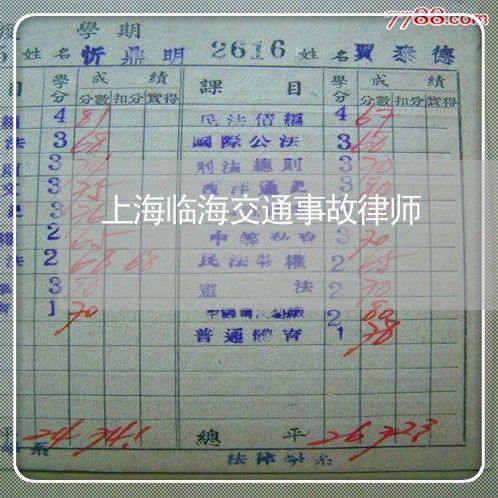 7788.com
學期
姓名 忻鼎明 2616 姓名 賈泰德
目 學分 成績 課目 學分 成績
分數 扣分 實得 分數 扣分 實得
4 81 民法債編 4 67
法 3 68 國際公法 3 60
3 刑法總則 3 70
3 75 西洋通史 3 80
上海临海交通事故律师
2 65 3 70
法 2 68 68 民法物權 2 65
3 80 憲法 2 70
1 70 2 80
普通體育 1 78
平 24 74.1 總平 26 72.3
系 法律學系